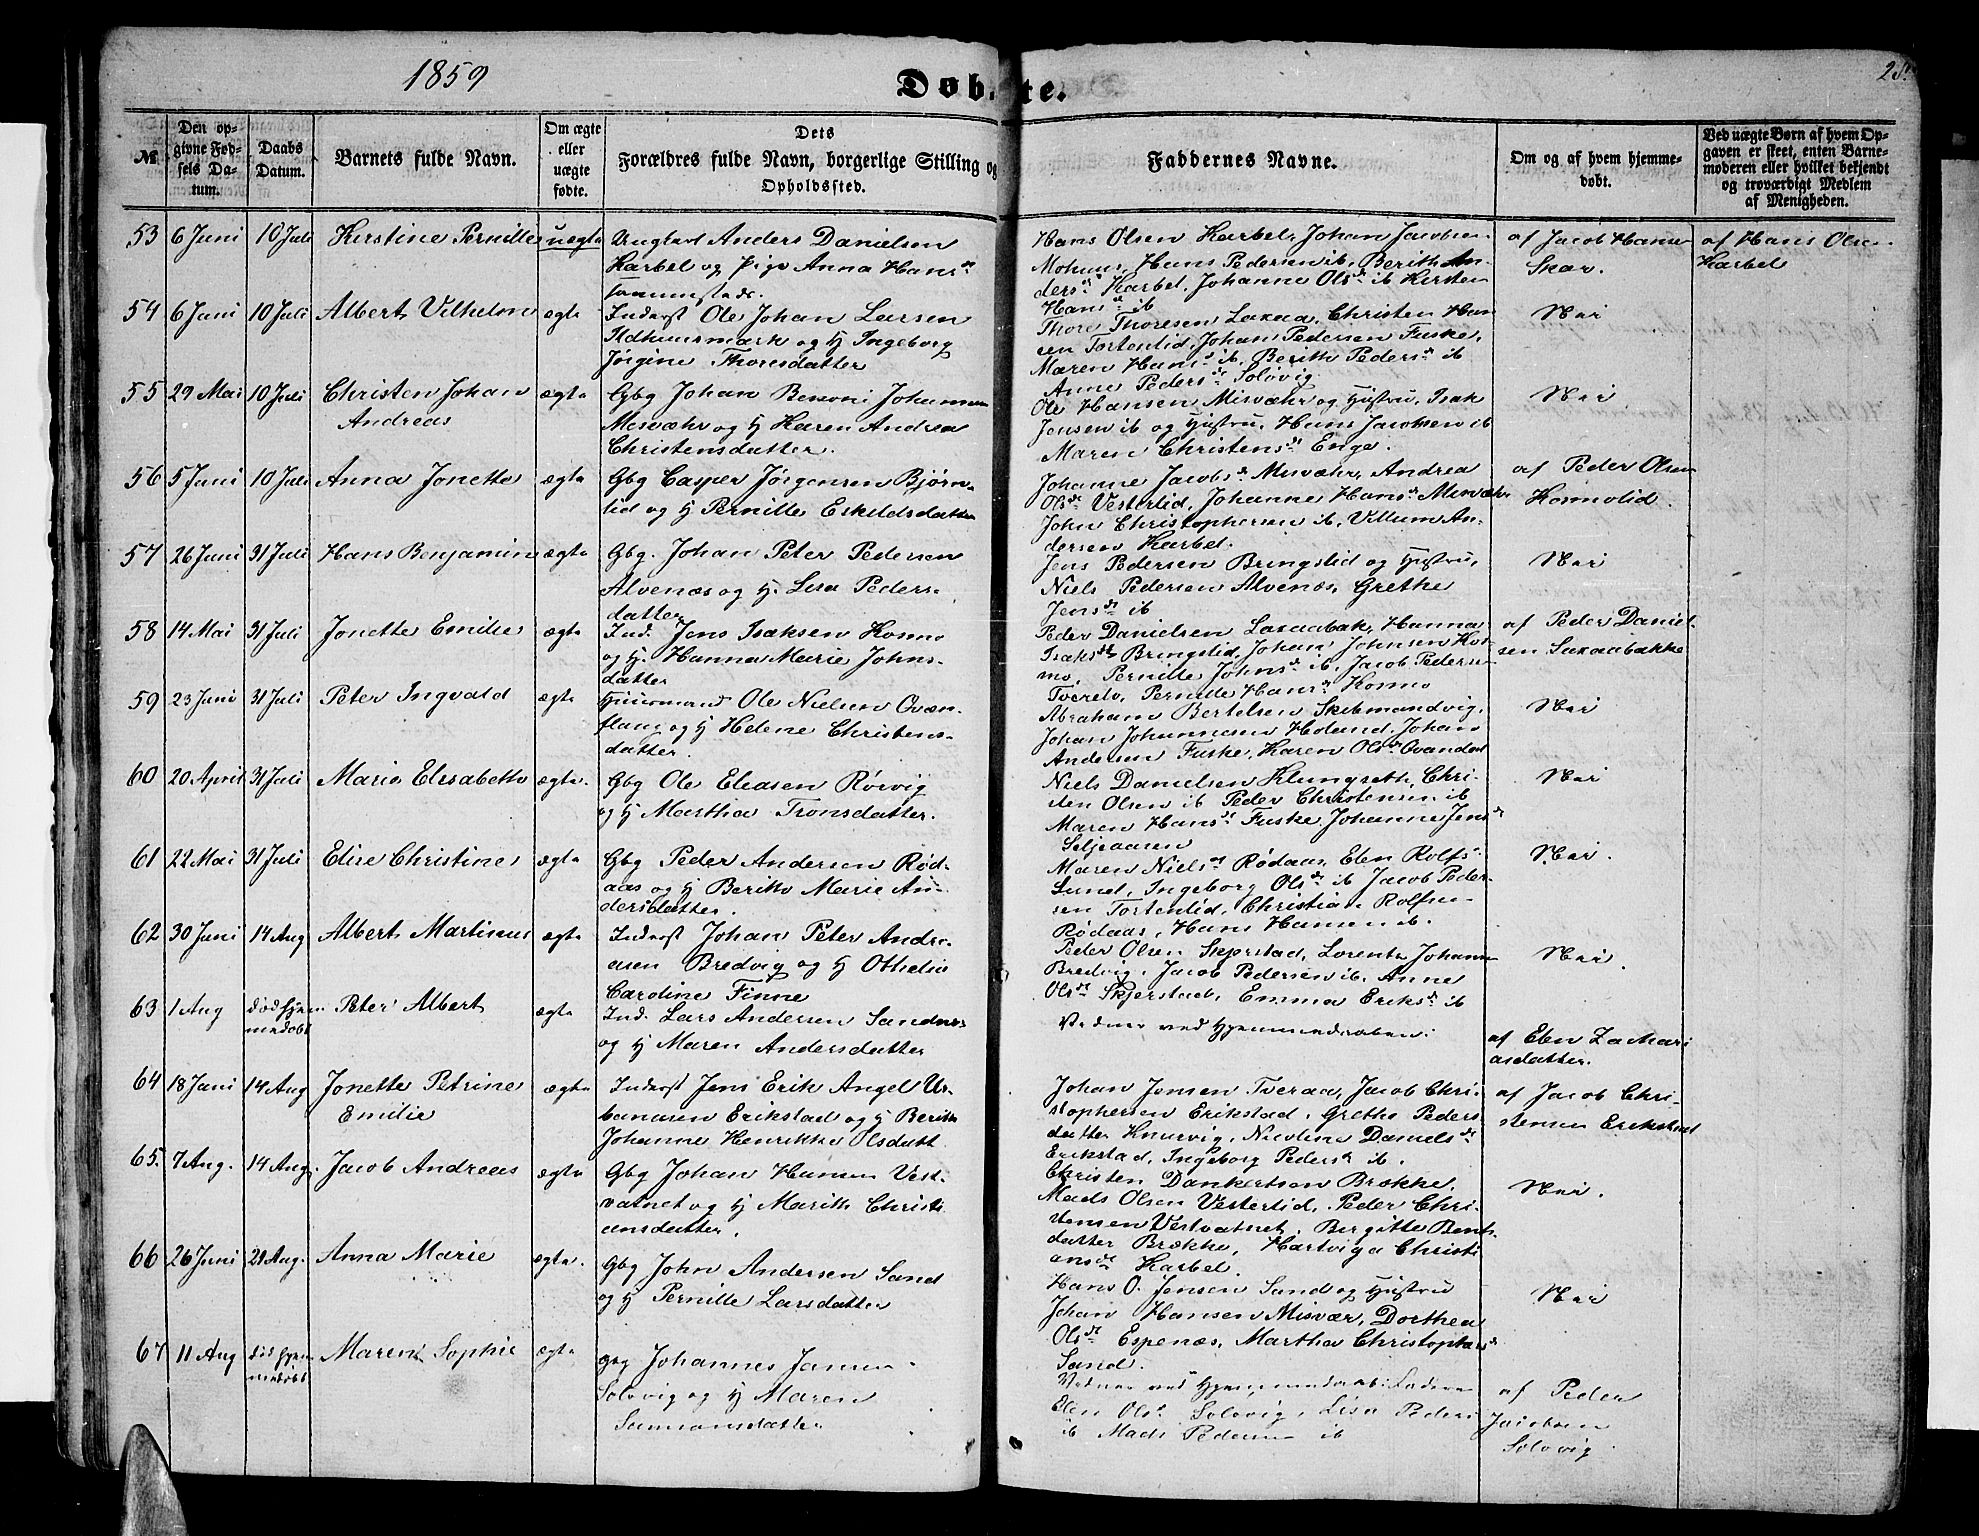 1859
Døbte.
25.
№
Den opgivne Fødsels Datum.
Daabs Datum.
Barnets fulde Navn.
Om ægte eller uægte fødte.
Dets Forældres fulde Navn, borgerlige Stilling og Opholdssted.
Faddernes Navne.
Om og af hvem hjemmedøbt.
Ved uægte Børn af hvem Opgaven er skeet, enten Barnemoderen eller hvilket bekjendt og troværdigt Medlem af Menigheden.
53 6 Juni 10 Juli Kirstine Pernille uægte
Ungkarl Anders Danielsen
Karbel og Pige Anna Hansdr
sammesteds.
Hans Olsen Karbel, Johan Jacobsen
Hans Pedersen ib, Berith An-
dersdr Karbel, Johanne Olsdr ib Kirsten
Hansdr ib
af Jacob Hansen
Skar.
af Hans Olsen
Karbel
54 6 Juni 10 Juli Albert Vilhelm ægte
Inderst Ole Johan Larsen
Ildhusmark og Hj Ingeborg
Jørgine Thoresdatter
Thore Thoresen Laxaa, Christen Han-
sen Tortenlid, Johan Pedersen Fuske,
Maren Hansdr ib, Berith Pedersdr ib
Anne Pedersdr Soløvig.
Nei
55 29 Mai 10 Juli Christen Johan
Andreas ægte
Gbg Johan Bersoni Johannesen
Misvæhr og Hj Karen Andrea
Christensdatter.
Ole Hansen Misvæhr og Hustru, Isak
Jensen ib og Hustru, Hans Jacobsen ib
Maren Christensdr Enge.
Nei
56 5 Juni 10 Juli Anna Jonette ægte
Gbg Casper Jørgensen Bjørn-
lid og Hj Pernille Eskildsdatter
Johanne Jacobsdr Misvæhr, Andrea
Olsdr Vesterlid, Johanne Hansdr Misvæhr
John Christophersen ib, Villum An-
dersen Karbel.
af Peder Olsen
Kosmolid.
57 26 Juni 31 Juli Hans Benjamin ægte
Gbg. Johan Peter Pedersen
Alvenæs og Hj. Lisa Peders-
datter
Jens Pedersen Bringslid og Hustru,
Niels Pedersen Alvenæs, Grethe
Jensdr ib
Nei
58 14 Mai 31 Juli Jonette Emilie ægte
Ind. Jens Isaksen Kosmo
og Hj. Hanna Marie Johns-
datter
Peder Danielsen Laxaabak, Hanna
Isaksdr Bringslid, Johan Johnsen Kos-
mo, Pernille Johnsdr ib, Jacob Pedersen
Tverelv, Pernille Hansdr Kosmo
af Peder Daniel-
sen Laxaabakke
59 23 Juni 31 Juli Peter Ingvald ægte
Huusmand Ole Nielsen Qvæn-
flaug og Hj Helene Christens-
datter
Abraham Bertelsen Skibmandvig,
Johan Johannesen Holand, Johan
Andersen Fuske, Karen Olsdr
Nei
60 20 April 31 Juli Marie Elisabeth ægte.
Gbg Ole Eliasen Rørvig
og Hj Martha Tronsdatter.
Niels Danielsen Klungseth, Chri-
sten Olsen ib Peder Christensen ib
Maren Hansdr Fuske, Johanne Jensdr
Seljeaasen
Nei
61 22 Mai 31 Juli Elise Christine ægte
Gbg Peder Andersen Rød-
aas og Hj Berith Marie An-
dersdatter.
Maren Nielsdr Rødaas, Elen Rolfs
Lund, Ingeborg Olsdr ib Jacob Peder-
sen Tortenlid, Christian Rolfsen
Rødaas, Hans Hansen ib.
Nei.
62 30 Juni 14 Aug Albert Martinus ægte
Inderst Johan Peter Andre-
asen Bredvig og Hj Othelie
Caroline Finne
Peder Olsen Skjerstad, Lorents Johansen
Bredvig, Jacob Pedersen ib, Anne
Olsdr Skjerstad, Emma Eriksdr ib
Nei.
63 1 Aug død hjem-
medøbt Peter Albert ægte
Ind. Lars Andersen Sandnes
og Hj Maren Andersdatter
Vidner ved Hjemmedaaben:
af Elen Zachari-
asdatter.
64 18 Juni 14 Aug Jonette Petrine
Emilie ægte
Inderst Jens Erik Angel Ur-
banusen Erikstad og Hj Berith
Johanne Henrikke Olsdatt
Johan Jensen Tveraa, Jacob Chri-
stophersen Erikstad, Grethe Peders
datter Knarvig, Nicoline Danielsdr
Erikstad, Ingeborg Pedersdr ib.
af Jacob Chri-
stensen Erikstad
65. 7 Aug. 14 Aug. Jacob Andreas ægte
Gbg Johan Hansen Vest-
vatnet og Hj Marith Christi-
ansdatter.
Christen Dankertsen Brække,
Mads Olsen Vesterlid, Peder Chri-
stensen Vestvatnet, Birgitte Bents-
datter Brække, Hartviga Christi-
ansdr Karbel.
Nei.
66 26 Juni 21 Aug. Anna Marie ægte.
Gbg John Andersen Sand
og Hj Pernille Larsdatter
Hans O. Jensen Sand og Hustru
Johan Hansen Misvær, Dorthea
Olsdr Espenæs, Martha Christophersdr
Sand.
Nei
67 11 Aug død hjem-
medøbt Maren Sophie ægte
Gbg Johannes Jansen
Soløvig og Hj Maren
Samsonsdatter
Vidner ved Hjemmedaab:
Elen Olsdr Soløvig, Lisa Pedersdr
ib Mads Pedersen ib
af Peder
Jacobsen
Soløvig.